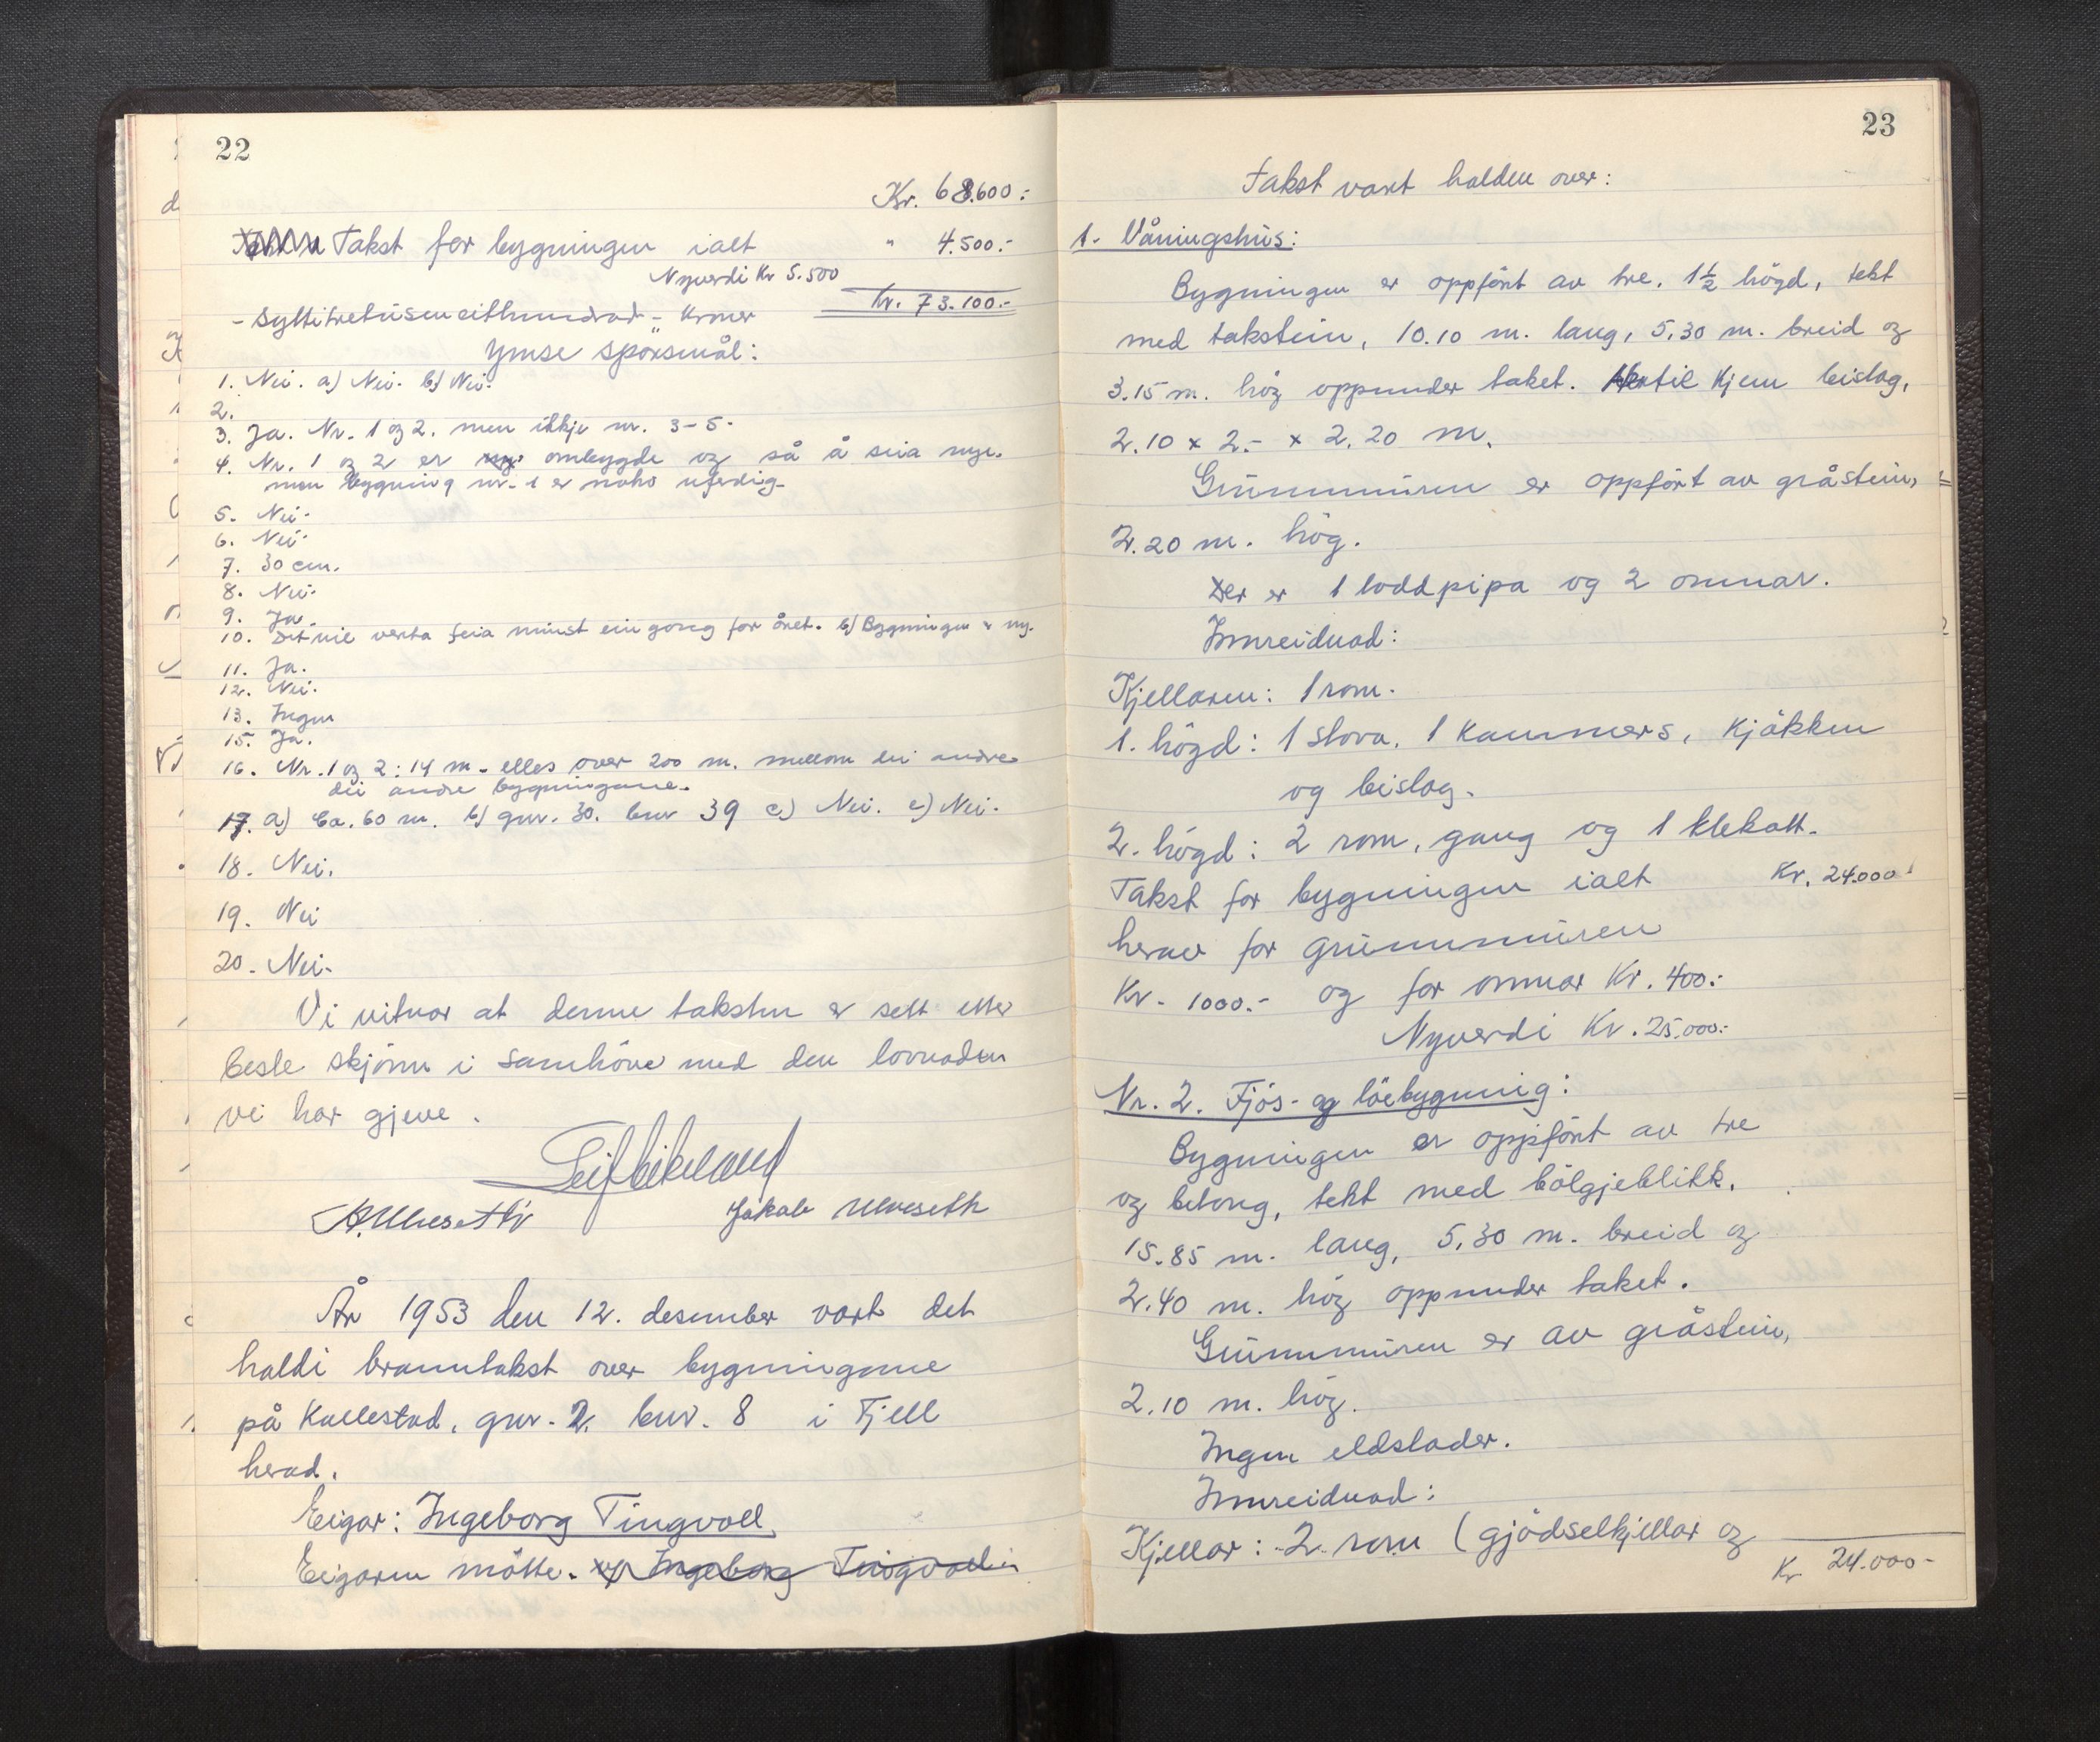 22
Kr. 68.600:
Takst for bygningen ialt " 4.500.-
Nyverdi Kr 5.500
- Syttitretusen eithundrad - Kroner Kr. 73.100.-
Ymse spørsmål:
1. Nei. a) Nei. b) Nei.
2.
3. Ja. Nr. 1 og 2. men ikkje nr. 3-5.
4. Nr. 1 og 2 er ombygde og så å seia nye.
men bygning nr. 1 er noko uferdig.
5. Nei.
6. Nei.
7. 30 cm.
8. Nei.
9. Ja.
10. Det vil verta feia minst ein gong for året. b) Bygningen er ny.
11. Ja.
12. Nei.
13. Ingen
15. Ja.
16. Nr. 1 og 2: 14 m. elles over 200 m. mellom dei andre
dei andre bygningane.
17. a) Ca. 60 m. b) gnr. 30. bnr 39 c) Nei. e) Nei.
18. Nei.
19. Nei
20. Nei.
Vi vitnar at denne taksten er sett etter
beste skjønn i samhøve med den lovnaden
vi har gjeve.
Leif Eikeland
A. Ulveseth Jakob Ulveseth
År 1953 den 12. desember vart det
haldi branntakst over bygningane
på Kallestad, gnr. 2. bnr. 8 i Fjell
herad.
Eigar: Ingeborg Tingvoll
Eigaren møtte. v/ Ingeborg Tingvoll
23
Takst vart halden over:
1. Våningshus:
Bygningen er oppført av tre, 1½ högd, tekt
med takstein, 10.10 m. lang, 5.30 m. breid og
3.15 m. hög oppunder taket. Hertil kjem beislag,
2.10 x 2.- x 2.20 m.
Grunnmuren er oppført av gråstein,
2.20 m. hög.
Der er 1 loddpipa og 2 omnar.
Innreidnad:
Kjellaren: 1 rom.
1. högd: 1 stova, 1 kammers, kjøkken
og beislag.
2. högd: 2 rom, gang og 1 klekott.
Takst for bygningen ialt Kr. 24.000:
herav for grunnmuren
Kr. 1000.- og for omnar Kr. 400:-
Nyverdi Kr. 25.000:-
Nr. 2. Fjös- og löebygning:
Bygningen er oppført av tre
og betong, tekt med bölgjeblikk.
15.85 m. lang, 5.30 m. breid og
2.40 m. hög oppunder taket.
Grunnmuren er av gråstein,
2.10 m. hög.
Ingen eldstader.
Innreidnad:
Kjellar: 2 rom (gjødselkjellar og
Kr 24.000-